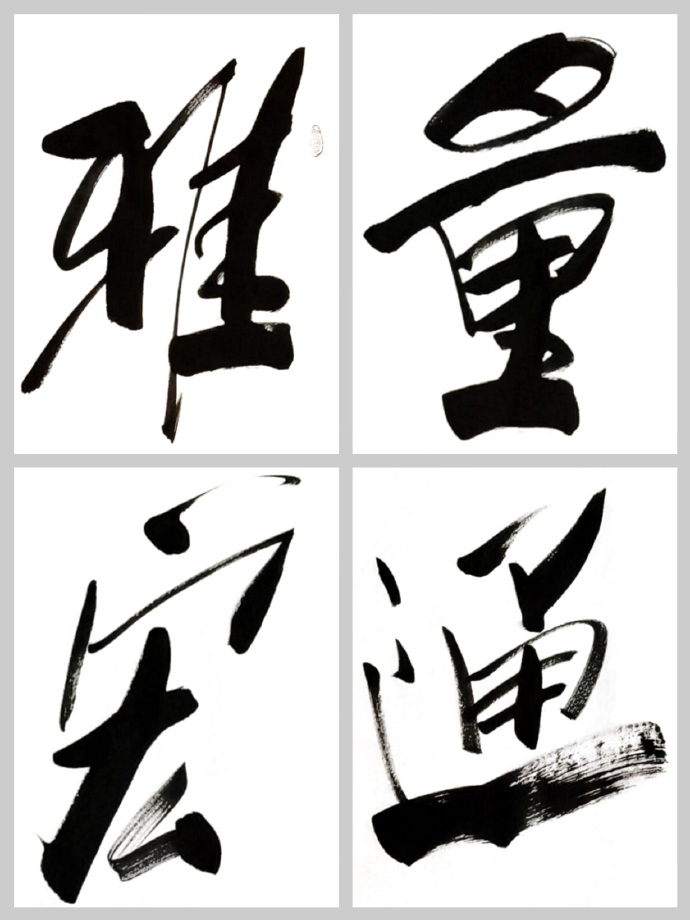 雅量
宏通